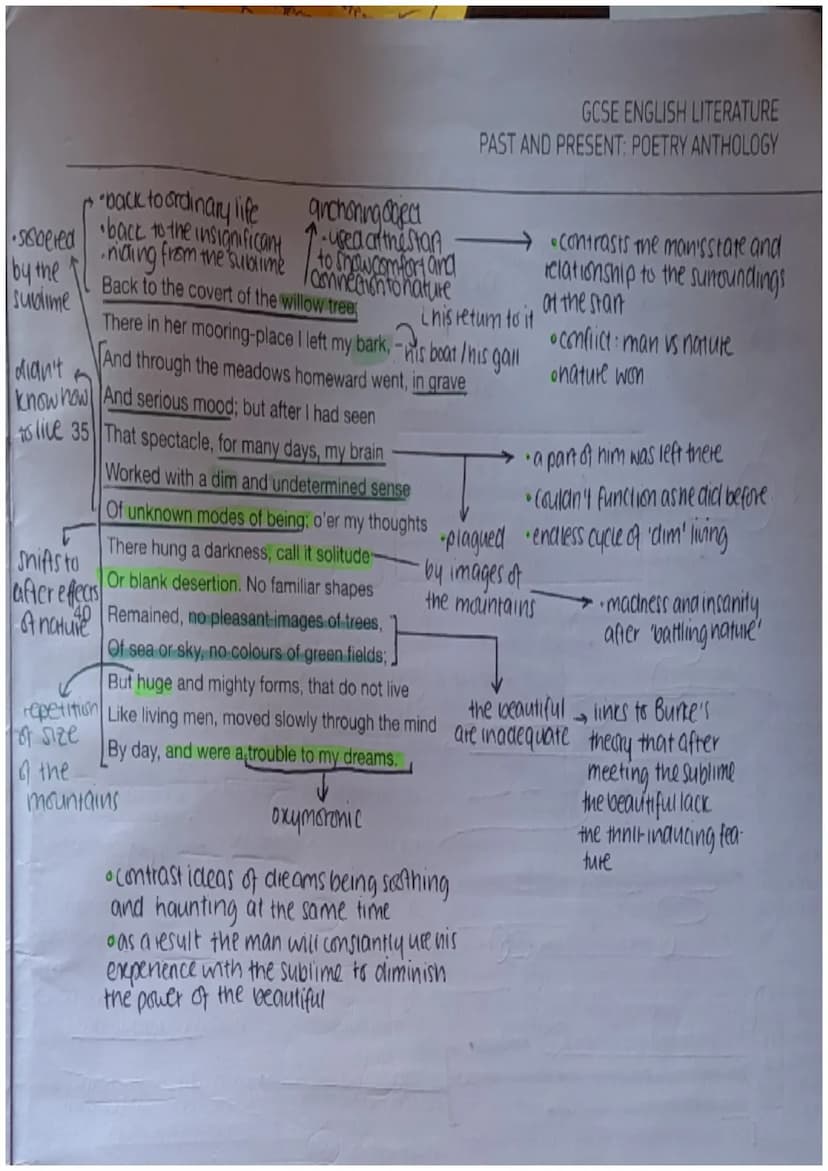 GCSE ENGLISH LITERATURE
PAST AND PRESENT: POETRY ANTHOLOGY
•back to ordinary life
•back to the insignificant
•hiding from the sublime
anchoring object
•used at the start
to show comfort and
connection to nature
•contrasts the man's state and
relationship to the surroundings
at the start
•conflict: man vs nature
•nature won
•sobered
by the
sublime
Back to the covert of the willow tree;
his return to it
There in her mooring-place I left my bark, –
his boat / his gall
And through the meadows homeward went, in grave
And serious mood; but after I had seen
didn't
know how
to live
35 That spectacle, for many days, my brain
Worked with a dim and undetermined sense
Of unknown modes of being; o'er my thoughts
•a part of him was left there
•couldn't function as he did before
•endless cycle of 'dim' living
•plagued
by images of
the mountains
•madness and insanity
after 'battling nature'
There hung a darkness, call it solitude
Or blank desertion. No familiar shapes
shifts to
after effects
of nature
40 Remained, no pleasant images of trees,
Of sea or sky, no colours of green fields;
But huge and mighty forms, that do not live
Like living men, moved slowly through the mind
By day, and were a trouble to my dreams.
repetition
of size
of the
mountains
the beautiful
are inadequate
links to Burke's
theory that after
meeting the sublime
the beautiful lack
the thrill-inducing fea-
ture
oxymoronic
•contrast ideas of dreams being soothing
and haunting at the same time
•as a result the man will constantly use his
experience with the sublime to diminish
the power of the beautiful